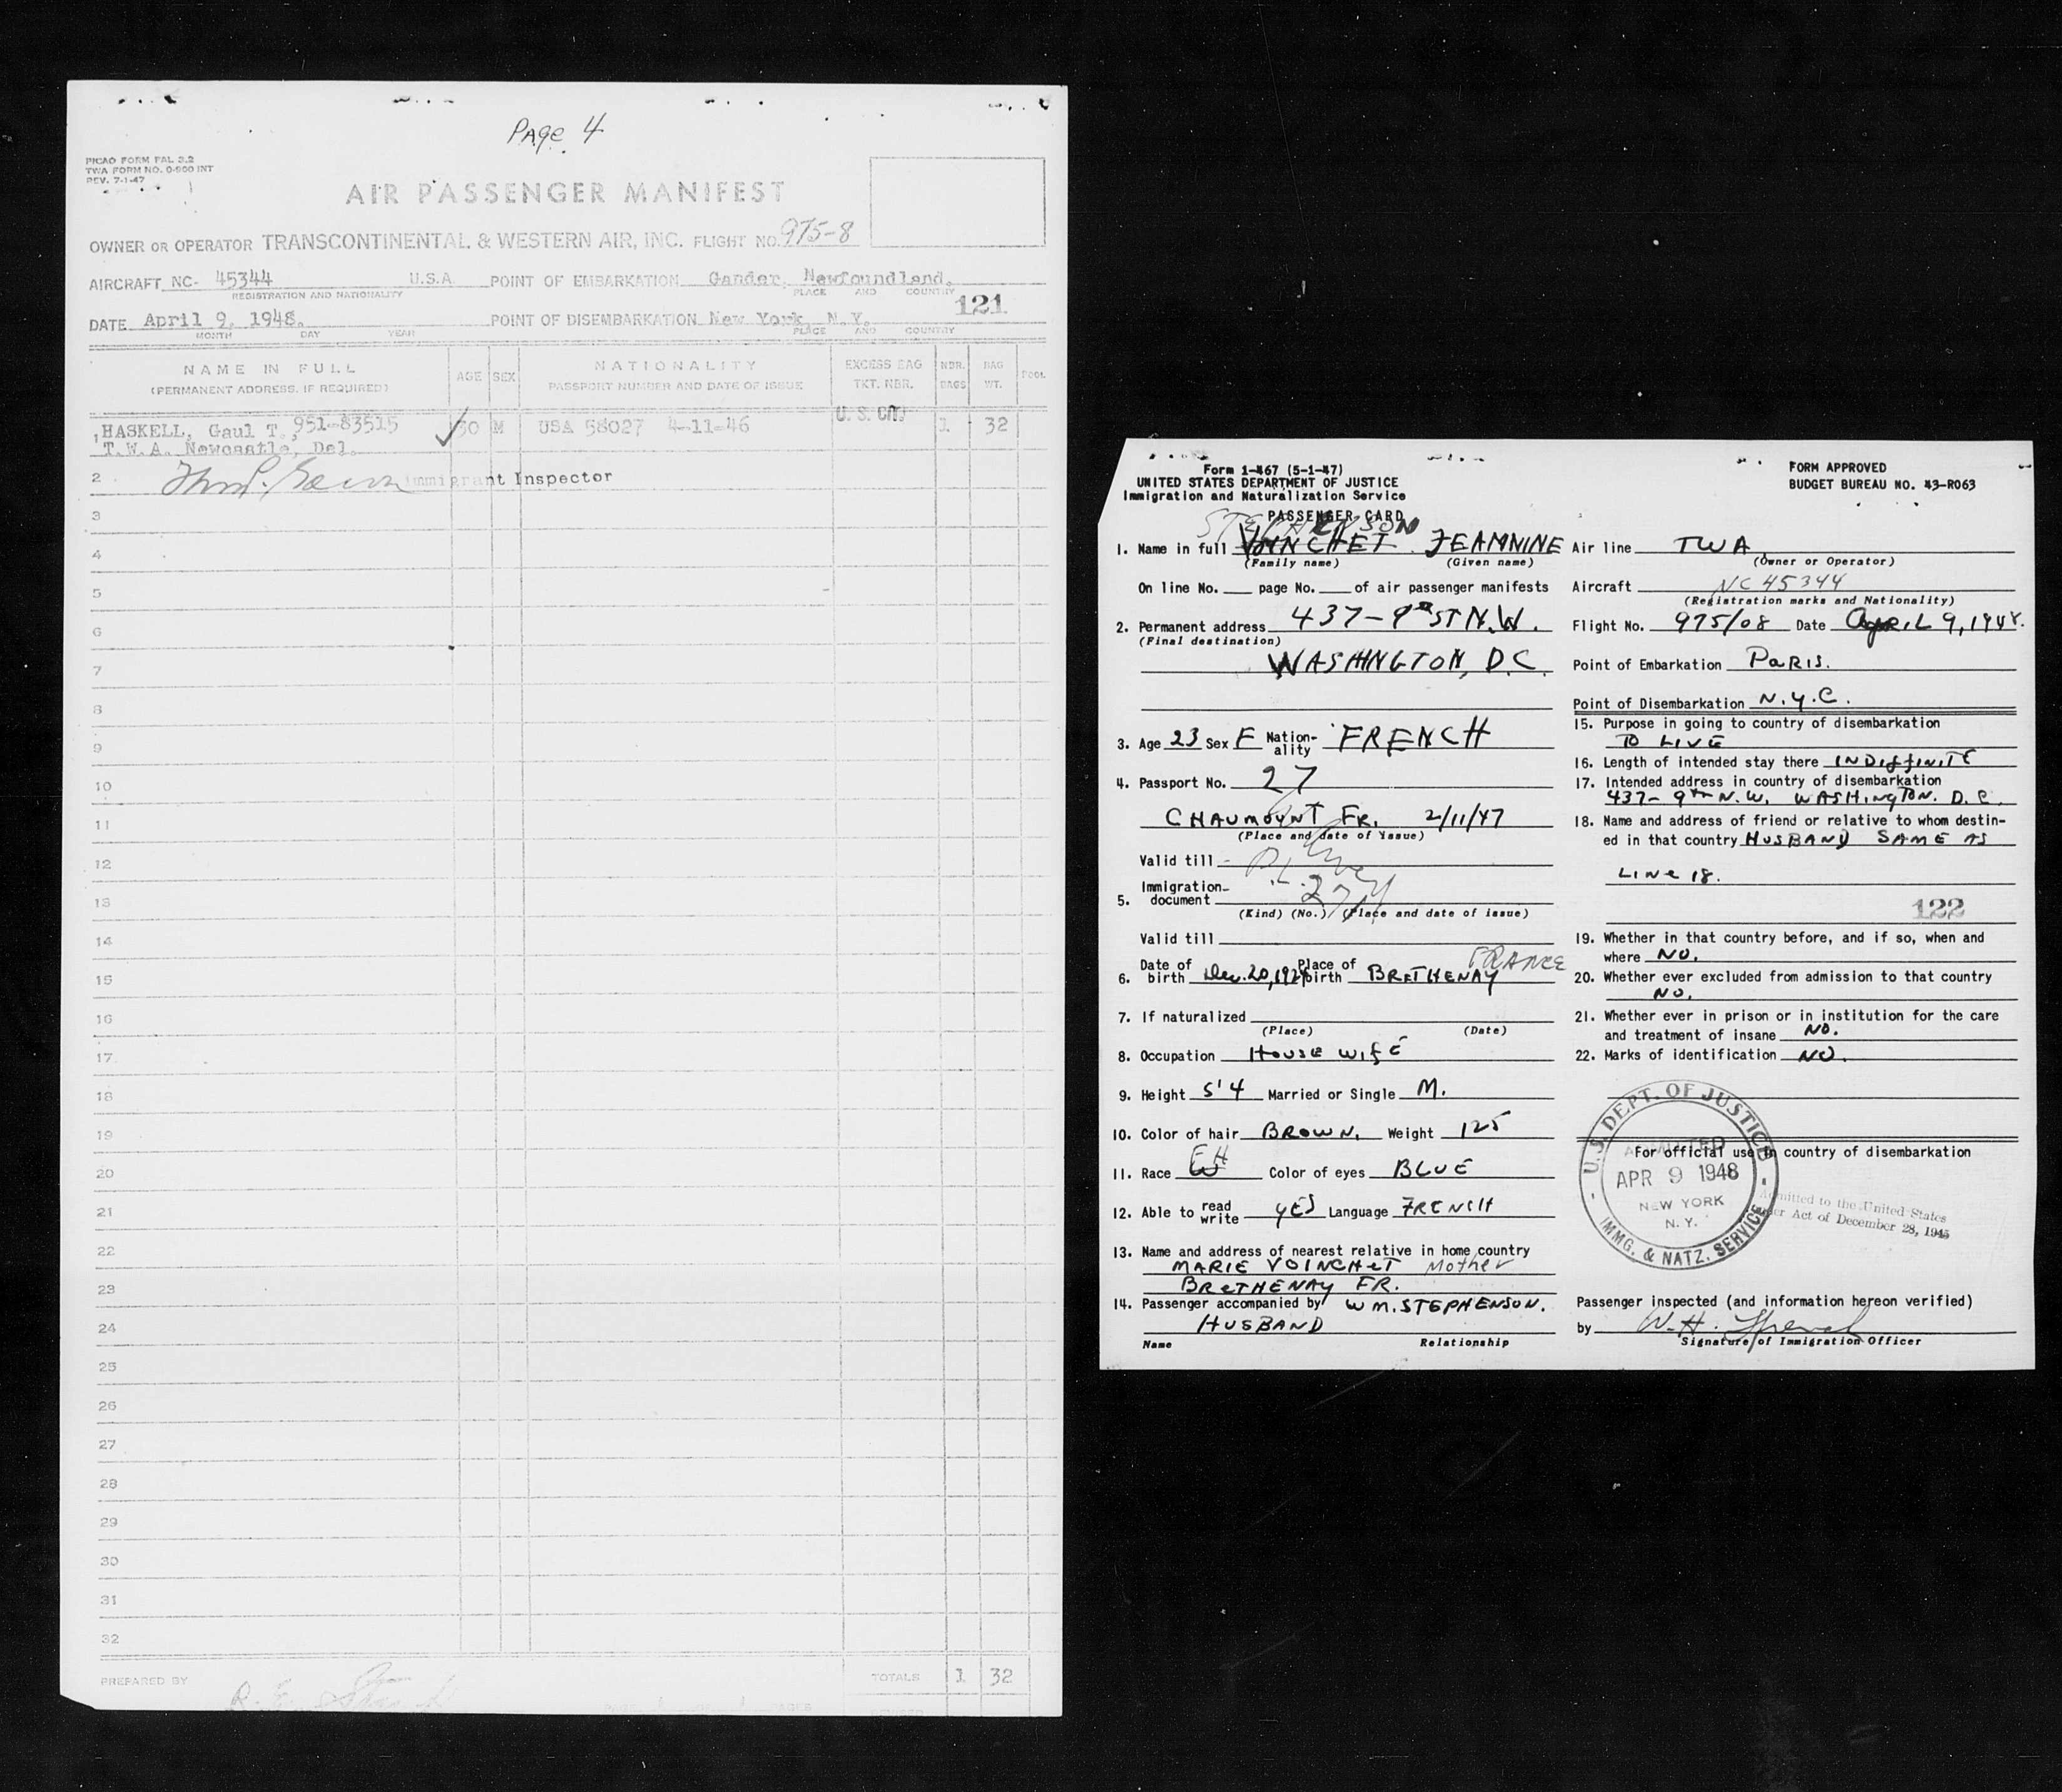 Page 4
PICAO FORM FAL 3.2
TWA FORM NO. 0-800 INT
REV. 7-1-47
AIR PASSENGER MANIFEST
OWNER OR OPERATOR TRANSCONTINENTAL & WESTERN AIR, INC. FLIGHT NO. 975-8
AIRCRAFT NC- 45344 U.S.A. POINT OF EMBARKATION Gander, Newfoundland.
REGISTRATION AND NATIONALITY PLACE AND COUNTRY
121
DATE April 9, 1948. POINT OF DISEMBARKATION New York, N.Y.
MONTH DAY YEAR PLACE AND COUNTRY
NAME IN FULL AGE SEX NATIONALITY EXCESS BAG NBR. BAG POOL
(PERMANENT ADDRESS, IF REQUIRED) PASSPORT NUMBER AND DATE OF ISSUE TKT. NBR. BAGS WT.
U. S. CIT.
1 HASKELL, Gaul T. 951-83515 30 M USA 58027 4-11-46 1 32
T.W.A. Newcastle, Del.
2 Immigrant Inspector
3
4
5
6
7
8
9
10
11
12
13
14
15
16
17
18
19
20
21
22
23
24
25
26
27
28
29
30
31
32
PREPARED BY TOTALS 1 32
Form 1-467 (5-1-47)
UNITED STATES DEPARTMENT OF JUSTICE
Immigration and Naturalization Service
FORM APPROVED
BUDGET BUREAU NO. 43-R063
PASSENGER CARD
STEPHENSON
1. Name in full VOINCHET JEAMNINE
(Family name) (Given name)
On line No. page No. of air passenger manifests
2. Permanent address 437-9th ST N.W.
(Final destination)
WASHINGTON, D.C.
3. Age 23 Sex F Nation-ality FRENCH
4. Passport No. 27
CHAUMOUNT FR. 2/11/47
(Place and date of issue)
Valid till -
5. Immigration document
(Kind) (No.) (Place and date of issue)
Valid till
FRANCE
6. Date of birth Dec. 20, 1924 Place of birth BRETHENAY
7. If naturalized
(Place) (Date)
8. Occupation HOUSE WIFE
9. Height 5'4 Married or Single M.
10. Color of hair BROWN. Weight 125
11. Race Color of eyes BLUE
12. Able to read write YES Language FRENCH
13. Name and address of nearest relative in home country
MARIE VOINCHET Mother
BRETHENAY FR.
14. Passenger accompanied by WM. STEPHENSON.
HUSBAND
Name Relationship
Air line TWA
(Owner or Operator)
Aircraft NC 45344
(Registration marks and Nationality)
Flight No. 975/08 Date APRIL 9, 1948.
Point of Embarkation PARIS.
Point of Disembarkation N.Y.C.
15. Purpose in going to country of disembarkation
TO LIVE
16. Length of intended stay there INDIFFINITE
17. Intended address in country of disembarkation
437- 9th N.W. WASHINGTON. D.C.
18. Name and address of friend or relative to whom destin-
ed in that country HUSBAND SAME AS
LINE 18.
122
19. Whether in that country before, and if so, when and
where NO.
20. Whether ever excluded from admission to that country
NO.
21. Whether ever in prison or in institution for the care
and treatment of insane NO.
22. Marks of identification NO.
For official use in country of disembarkation
U.S. DEPT. OF JUSTICE
ADMITTED
APR 9 1948
NEW YORK
N.Y.
IMMG. & NATZ. SERVICE
Admitted to the United States
under Act of December 28, 1945
Passenger inspected (and information hereon verified)
by W.H.
Signature of Immigration Officer